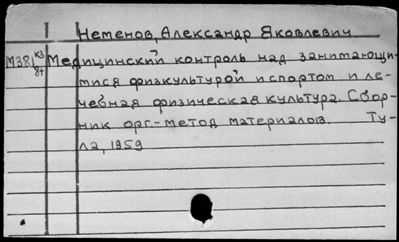 Неменов, Александр Яковлевич
М381 кз Медицинский контроль над занимающи-
84 мися физкультурой и спортом и ле-
чебная физическая культура. Сбор-
ник орг.-метод материалов. Ту-
ла, 1959